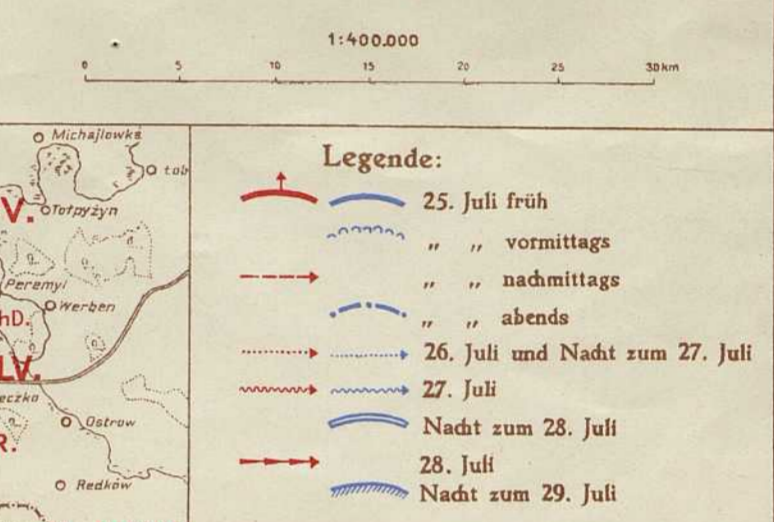 1:400.000
0 5 10 15 20 25 30 km
Michajlowka
tob
V.
Tołpyżyn
Peremyl
Werben
hD.
LV.
eczko
Ostrow
R.
Redków
Legende:
25. Juli früh
„ „ vormittags
„ „ nachmittags
„ „ abends
26. Juli und Nacht zum 27. Juli
27. Juli
Nacht zum 28. Juli
28. Juli
Nacht zum 29. Juli